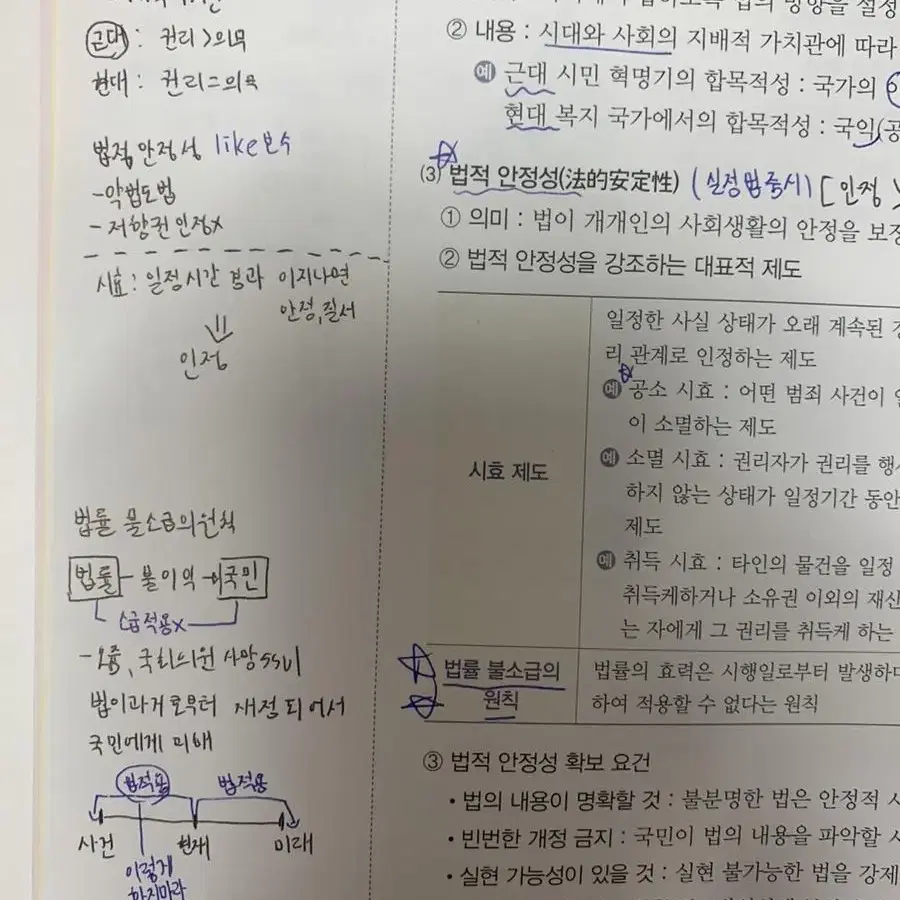 근대 : 권리>의무
현대 : 권리=의무
법적 안정성 like 보수
-악법도법
-저항권 인정x
시효 : 일정시간 경과 이지나면
안정, 질서
인정
법률 불소급의 원칙
법률 - 불이익 → 국민
소급적용x
국회의원 사망ssul
법이과거로부터 재정되어서
국민에게 피해
법적용 법적용
사건 현재 미래
이렇게
하지마라
② 내용 : 시대와 사회의 지배적 가치관에 따라
예 근대 시민 혁명기의 합목적성 : 국가의
현대 복지 국가에서의 합목적성 : 국익(공
(3) 법적 안정성(法的安定性) (실정법중시) [인정 >
① 의미 : 법이 개개인의 사회생활의 안정을 보장
② 법적 안정성을 강조하는 대표적 제도
시효 제도
일정한 사실 상태가 오래 계속된
리 관계로 인정하는 제도
예 공소 시효 : 어떤 범죄 사건이
이 소멸하는 제도
예 소멸 시효 : 권리자가 권리를 행사
하지 않는 상태가 일정기간 동안
제도
예 취득 시효 : 타인의 물건을 일정
취득케하거나 소유권 이외의 재산
는 자에게 그 권리를 취득케 하는
법률 불소급의
원칙
법률의 효력은 시행일로부터 발생하며
하여 적용할 수 없다는 원칙
③ 법적 안정성 확보 요건
• 법의 내용이 명확할 것 : 불분명한 법은 안정적 사
• 빈번한 개정 금지 : 국민이 법의 내용을 파악할 시
• 실현 가능성이 있을 것 : 실현 불가능한 법을 강제